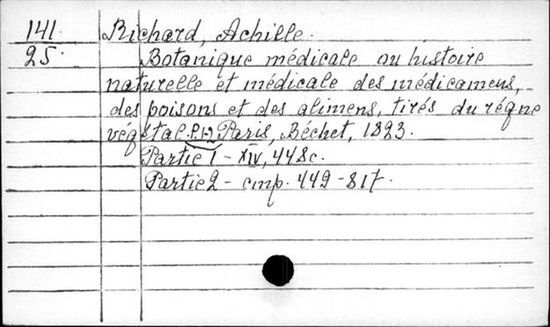 141. Richard, Achille.
25. Botanique médicale ou histoire
naturelle et médicale des médicamens,
des poisons et des alimens, tirés du régne
végétal. P.1-2 Paris, Béchet, 1823.
Partie 1 - XIV, 448c.
Partie 2 - cmp. 449-817.